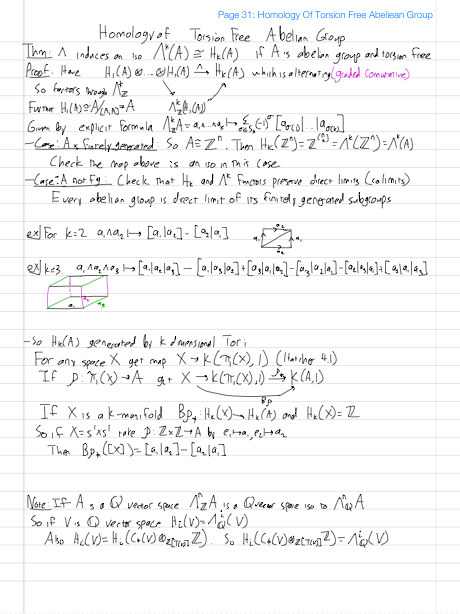 Page 31: Homology Of Torsion Free Abeliean Group
Homology of Torsion Free Abelian Group
Thm: Λ induces an iso Λ^k(A) ≅ H_k(A) if A is abelian group and torsion free
Proof. Have H_1(A)⊗...⊗H_1(A) →^Λ H_k(A) which is alternating (graded comutative)
So factors through Λ^k_ℤ
Λ^k_ℤ(H_1(A))
Further H_1(A)≅A/[A,A]=A
Given by explicit formula Λ^k_ℤ A = a_1∧...∧a_k ↦ Σ_{σ∈S_k} (-1)^σ [a_σ(1)|...|a_σ(k)]
- Case: A is finitely generated: So A≅ℤ^n. Then H_k(ℤ^n)=ℤ^(n k)=Λ^k(ℤ^n)=Λ^k(A)
Check the map above is an iso in this case
- Case: A not fg: Check that H_k and Λ^k functors preserve direct limits (colimits)
Every abelian group is direct limit of its finitely generated subgroups
ex| For k=2 a_1∧a_2 ↦ [a_1|a_2]-[a_2|a_1]
a_2
a_1 a_1
a_2
ex| k=3. a_1∧a_2∧a_3 ↦ [a_1|a_2|a_3] - [a_1|a_3|a_2]+[a_3|a_1|a_2]-[a_3|a_2|a_1]-[a_2|a_1|a_3]+[a_2|a_3|a_1]
a_2
a_1 a_3
- So H_k(A) generated by k dimensional Tori
For any space X get map X → K(π_1(X),1) (Hatcher 4.1)
If ρ: π_1(X)→A get X → K(π_1(X),1) → K(A,1)
Bρ
If X is a k-manifold Bρ_*: H_k(X)→H_k(A) and H_k(X)=ℤ
So if X=S^1×S^1 take ρ: ℤ×ℤ→A by e_1↦a_1, e_2↦a_2
Then Bρ_*([X])=[a_1|a_2]-[a_2|a_1]
Note: If A is a ℚ vector space Λ^n_ℤ A is a ℚ vector space iso to Λ^n_ℚ A
So if V is ℚ vector space H_i(V)=Λ^i_ℚ(V)
Also H_i(V)=H_i(C_*(V)⊗_ℤ[T(V)] ℤ). So H_i(C_*(V)⊗_ℤ[T(V)] ℤ)=Λ^i_ℚ(V)